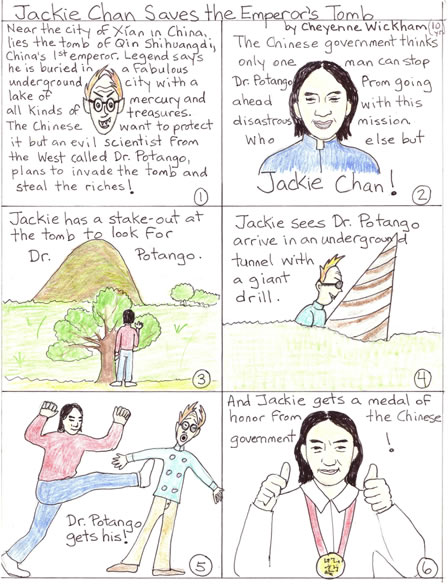 Jackie Chan Saves the Emperor's Tomb
by Cheyenne Wickham 10
Near the city of Xi'an in China,
lies the tomb of Qin Shihuangdi,
China's 1st emperor. Legend says
he is buried in a fabulous
underground city with a
lake of mercury and
all kinds of treasures.
The Chinese want to protect
it but an evil scientist from
the West called Dr. Potango,
plans to invade the tomb and
steal the riches!
1
The Chinese government thinks
only one man can stop
Dr. Potango From going
ahead with this
disastrous mission.
Who else but
Jackie Chan!
2
Jackie has a stake-out at
the tomb to look For
Dr. Potango.
3
Jackie sees Dr. Potango
arrive in an underground
tunnel with
a giant
drill.
4
Dr. Potango
gets his!
5
And Jackie gets a medal of
honor from the Chinese
government!
6